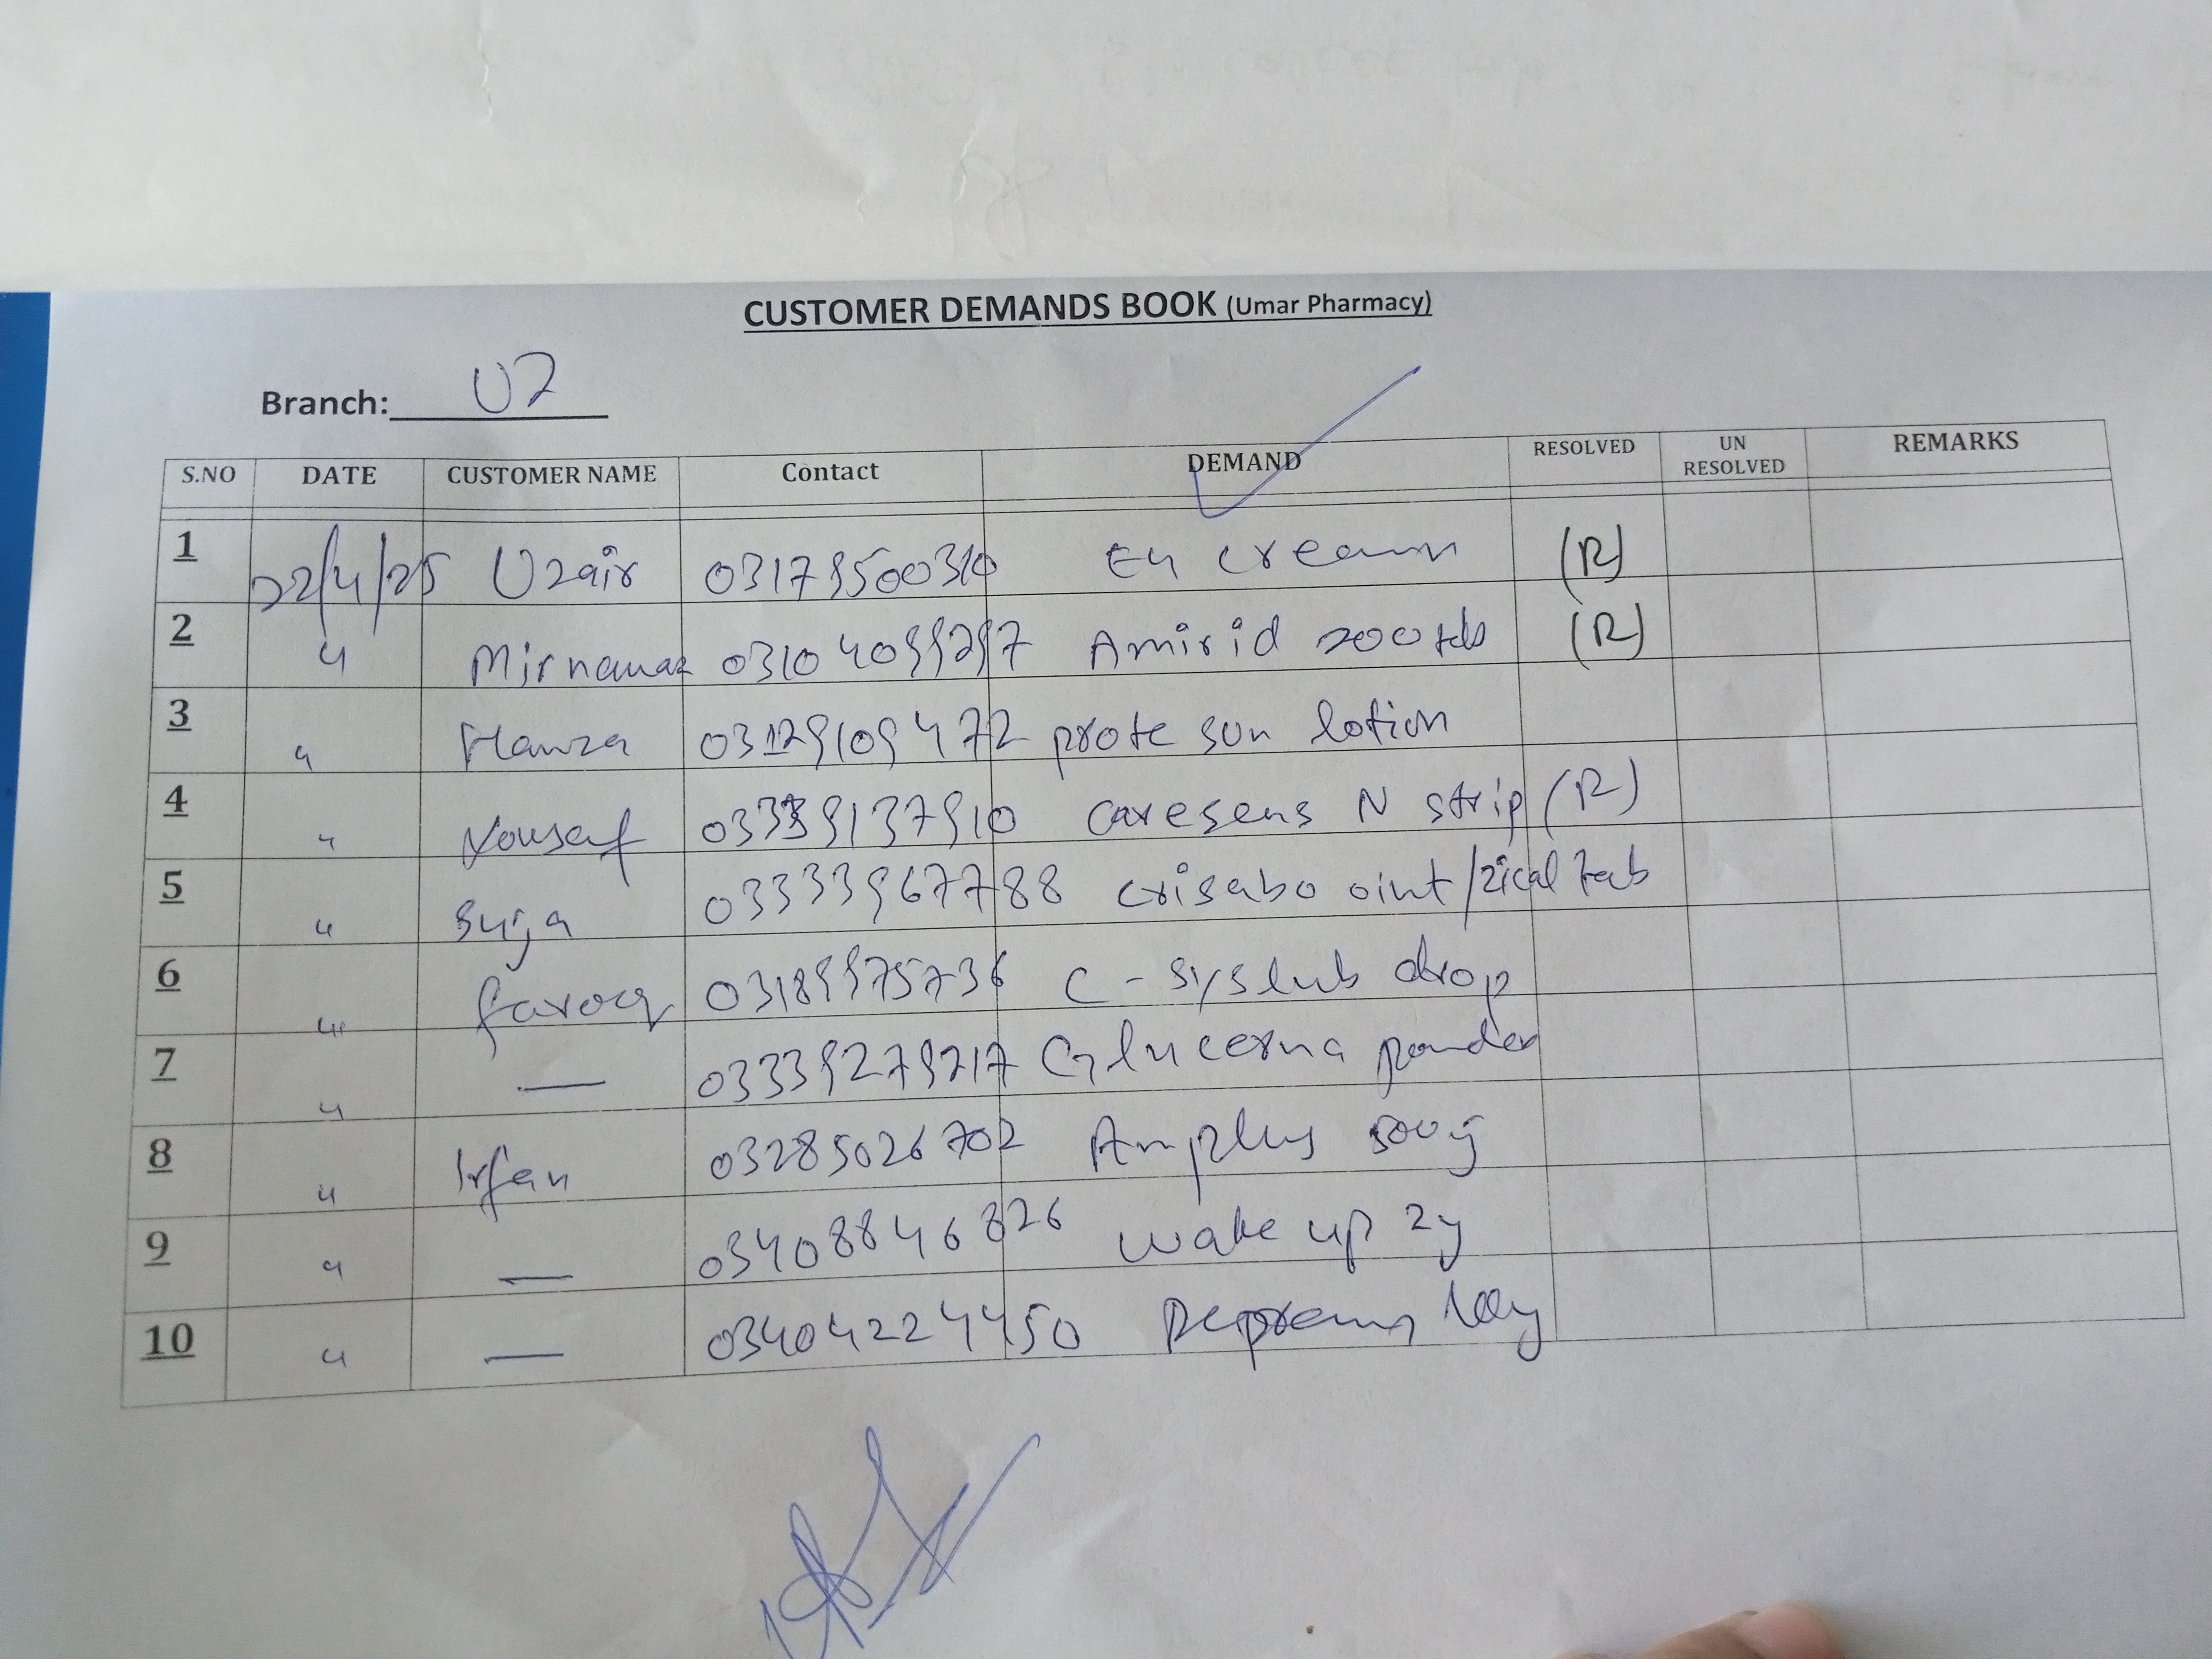 CUSTOMER DEMANDS BOOK (Umar Pharmacy)
Branch: U7
S.NO DATE CUSTOMER NAME Contact DEMAND RESOLVED UN RESOLVED REMARKS
1 22/4/25 Uzair Cream (R)
2 " Mirnawaz 03104099297 Amirid 200 tab (R)
3 " Hamza 03129109472 prote sun lotion
4 " Yousaf 03339137910 caresens N strip (R)
5 " Suja 03333967788 crisabo oint/zical tab
6 " farooq 03189975736 C-syslub drop
7 " — 03339279217 Glucerna powder
8 " Irfan 03285026702 Amplus 500g
9 " — 03408846826 wake up 2g
10 " — 03404224450